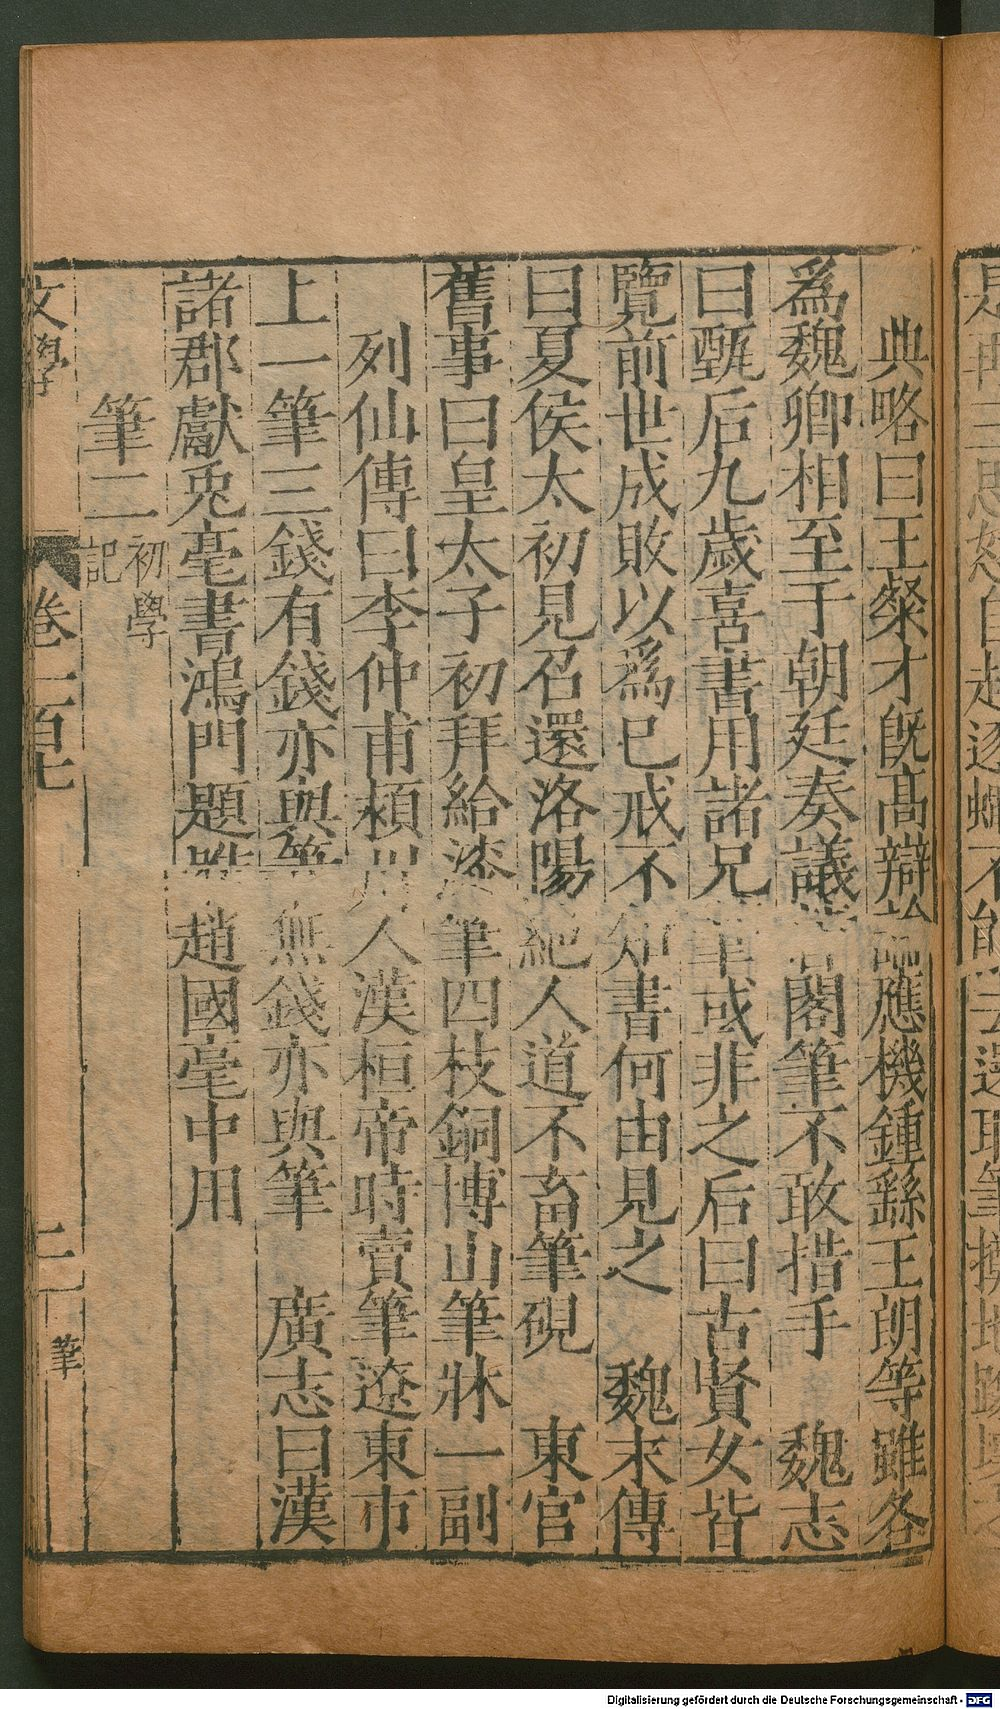 典略曰王粲才既髙辯論應機鍾繇王朗等雖各
爲魏卿相至于朝廷奏議皆閣筆不敢措手　魏志
曰甄后九歲喜書用諸兄筆或非之后曰古賢女皆
覽前世成敗以爲已戒不知書何由見之　魏末傳
曰夏侯太初見召還洛陽絶人道不畜筆硯　東宮
舊事曰皇太子初拜給漆筆四枝銅博山筆牀一副
列仙傳曰李仲甫潁川人漢桓帝時賣筆遼東市
上一筆三錢有錢亦與筆無錢亦與筆　廣志曰漢
諸郡獻兎毫書鴻門題趙國毫中用
筆二初學記
文學
卷一百七
二
筆
Digitalisierung gefördert durch die Deutsche Forschungsgemeinschaft - DFG